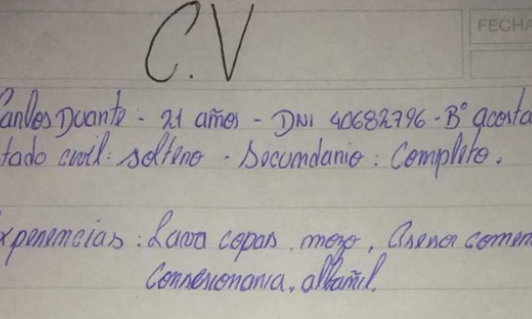 C.V
FECHA
Carlos Duarte - 21 años - DNI 40682796 - B° acosta
tado civil: soltero - Secundario: Completo.
xperiencias: Lava copas, mozo, Asesor comer
Consesionaria, albañil.